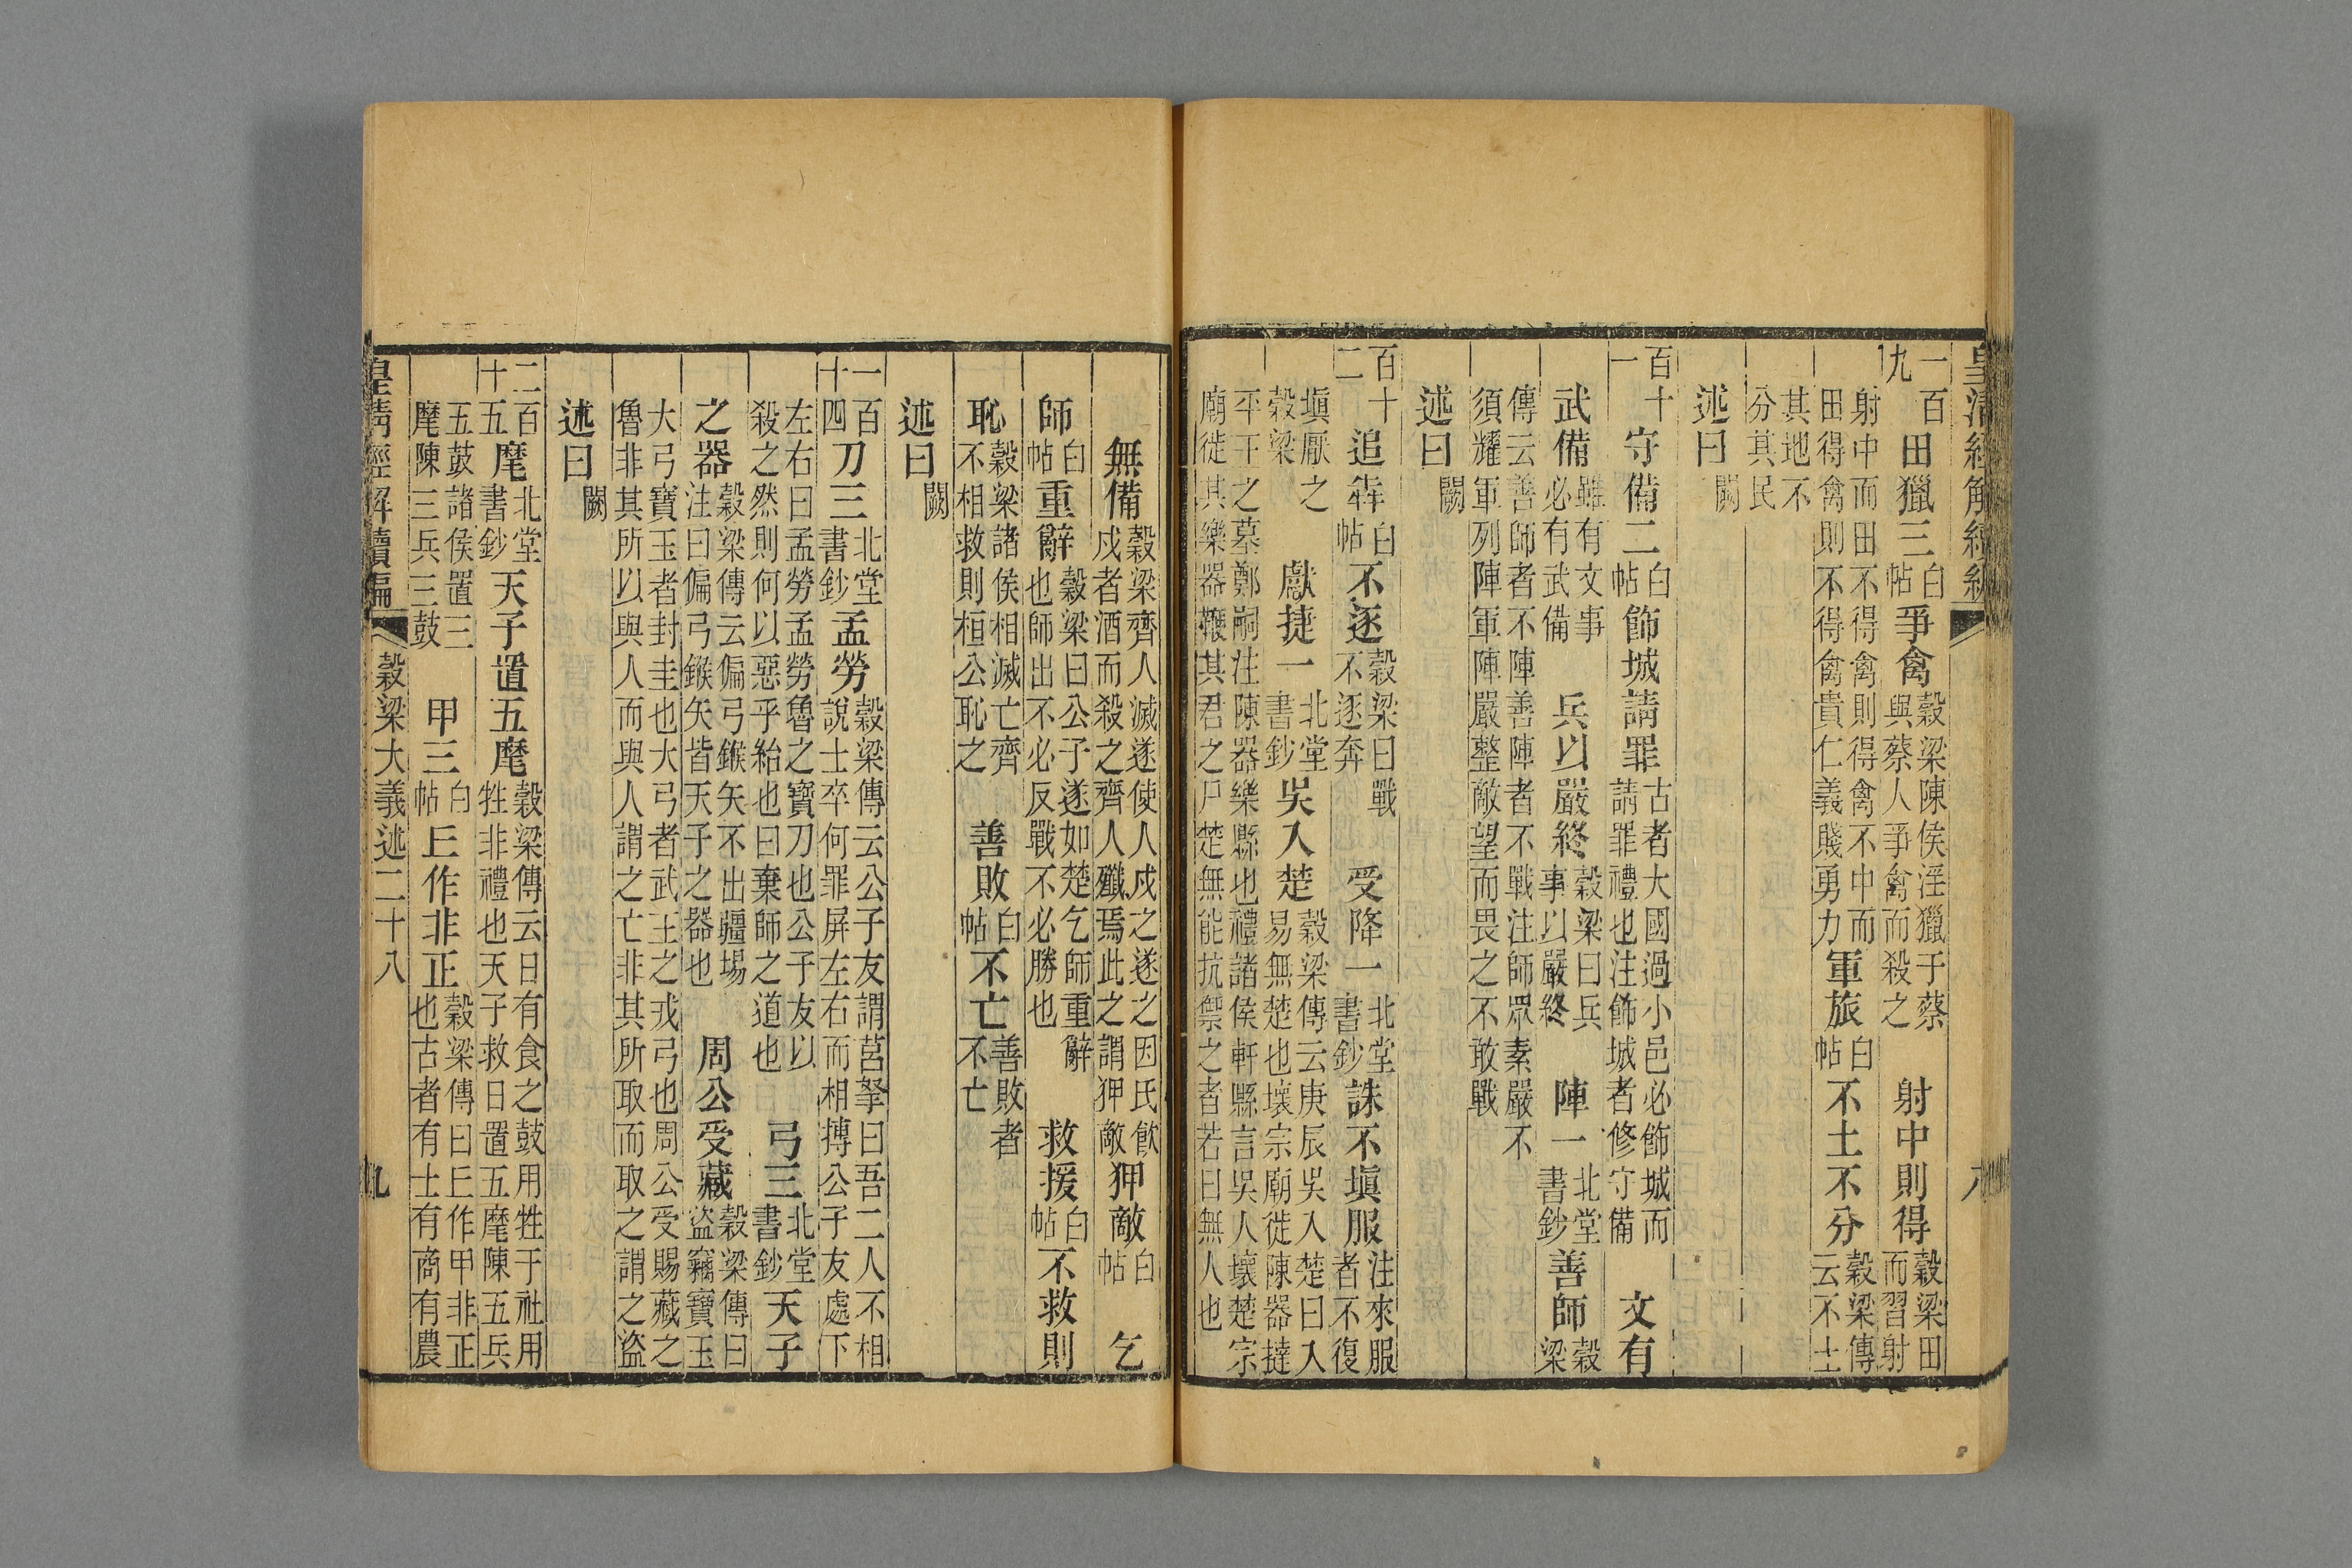 皇清經解續編
一百九田獵三白帖爭禽穀梁陳侯淫獵于蔡與蔡人爭禽而殺之 射中則得穀梁田而習射
射中而田不得禽則得禽不中而田得禽則不得禽貴仁義賤勇力軍旅白帖不土不分穀梁傳云不土
其地不分其民
述曰闕
百十一守備二白帖飾城請罪古者大國過小邑必飾城而請罪禮也注飾城者修守備 文有
武備雖有文事必有武備 兵以嚴終穀梁曰兵事以嚴終 陣一北堂書鈔善師穀梁
傳云善師者不陣善陣者不戰注師眾素嚴不須耀軍列陣軍陣嚴整敵望而畏之不敢戰
述曰闕
百十二追犇白帖不逐穀梁曰戰不逐奔 受降一北堂書鈔誅不塡服注來服者不復
塡厭之穀梁 獻捷一北堂書鈔吳入楚穀梁傳云庚辰吳入楚曰入易無楚也壞宗廟徙陳器撻
平王之墓鄭嗣注陳器樂縣也禮諸侯軒縣言吳人壞楚宗廟徙其樂器鞭其君之尸楚無能抗禦之者若曰無人也
無備穀梁齊人滅遂使人戍之遂之因氏飮戍者酒而殺之齊人殲焉此之謂狎敵狎敵白帖 乞
師白帖重辭穀梁曰公子遂如楚乞師重辭也師出不必反戰不必勝也 救援白帖不救則
恥穀梁諸侯相滅亡齊不相救則桓公恥之 善敗白帖不亡善敗者不亡
述曰闕
一百十四刀三北堂書鈔孟勞穀梁傳云公子友謂莒拏曰吾二人不相說士卒何罪屏左右而相搏公子友處下
左右曰孟勞孟勞魯之寶刀也公子友以殺之然則何以惡乎紿也曰棄師之道也 弓三北堂書鈔天子
之器穀梁傳云偏弓鍭矢不出疆場注曰偏弓鍭矢皆天子之器也 周公受藏穀梁傳曰盜竊寶玉
大弓寶玉者封圭也大弓者武王之戎弓也周公受賜藏之魯非其所以與人而與人謂之亡非其所取而取之謂之盜
述曰闕
二百十五麾北堂書鈔天子置五麾穀梁傳云日有食之鼓用牲于社用牲非禮也天子救日置五麾陳五兵
五鼓諸侯置三麾陳三兵三鼓 甲三白帖𠀉作非正穀梁傳曰𠀉作甲非正也古者有士有商有農
皇清經解續編 穀梁大義述二十八 九